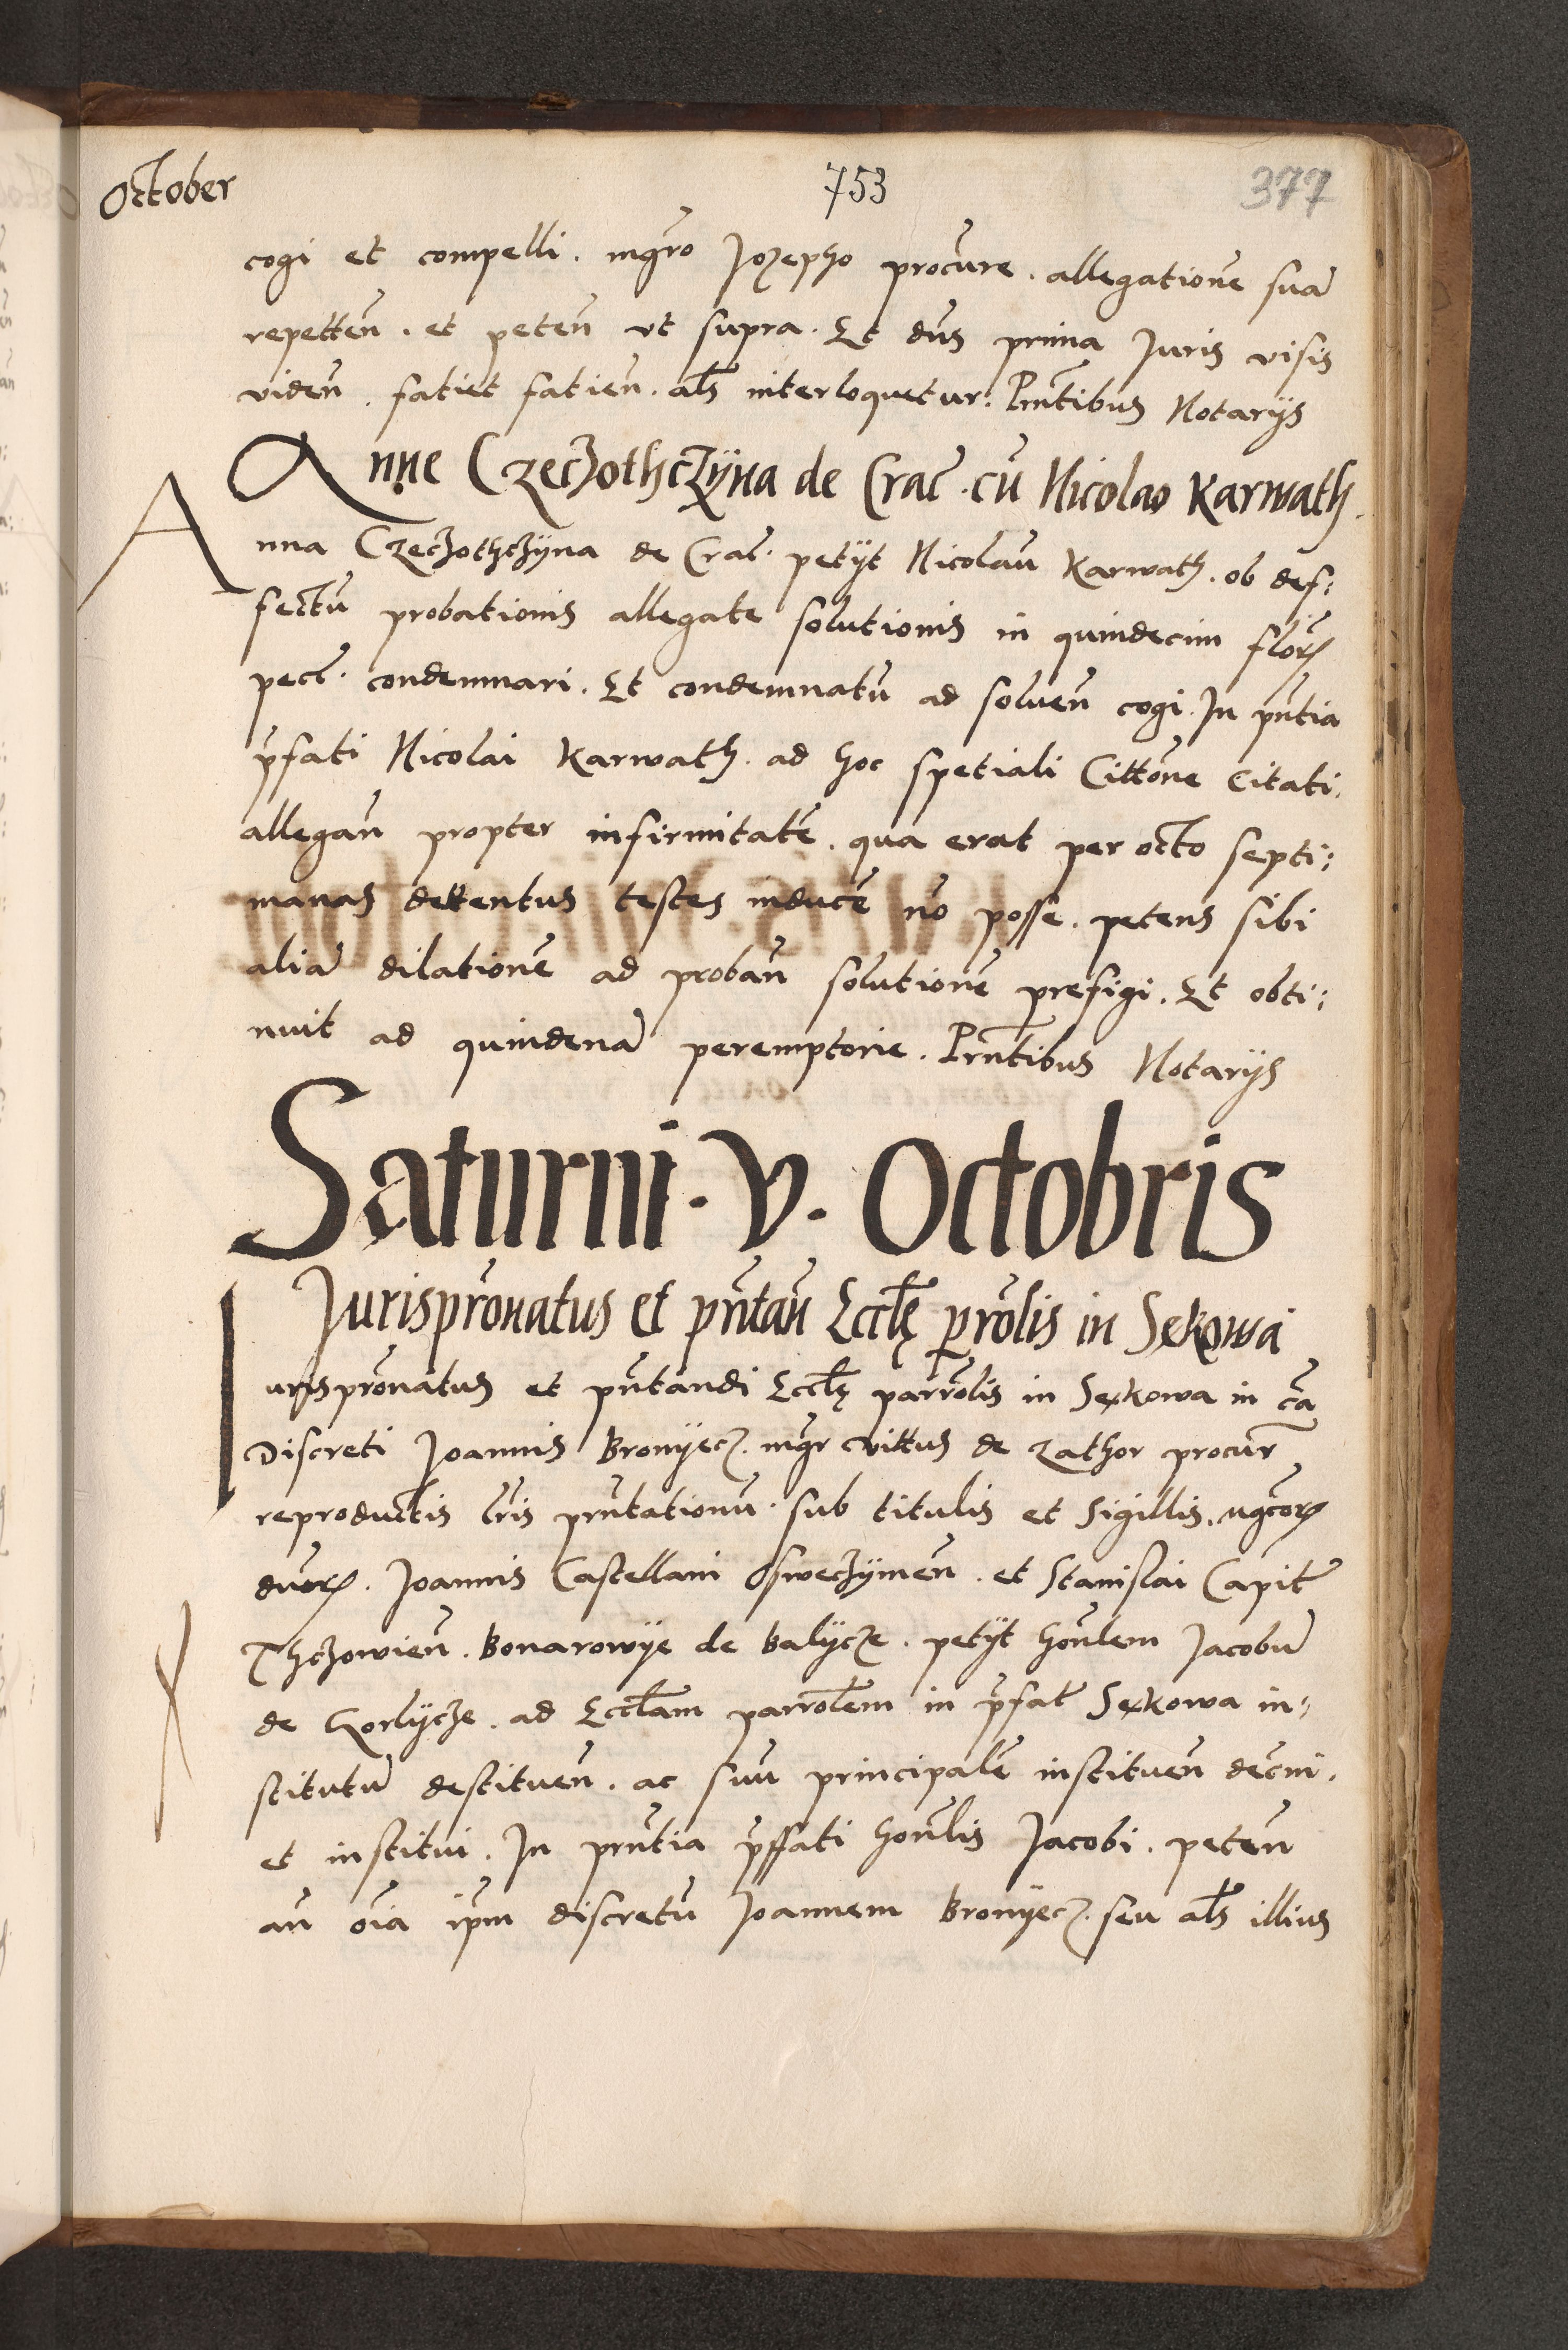 October
753
377
cogi et compelli. mgr̄o Jozepho procūre. allegationē suā
repetteñ. et peteñ vt supra. Et dn̄s prima Juris visis
videñ. fatiet fatieñ. als̄ interloquetur. Prn̄tibus Notarijs
Anne Czeczothczÿna de Crac̄. cū Nicolao Karwath.
Anna Czeczothczÿna de Crac̄. petÿt Nicolaū Karwath. ob def:
fectū probationis allegate solutionis in quindecim flōrꝝ
pecc̄. condemnari. Et condemnatū ad solueñ cogi. In pn̄tia
p̄fati Nicolai Karwath. ad hoc spetiali Cittōne citati.
allegañ propter infirmitatē. qua erat per octo septi:
manas dettentus testes inducē nō posse. petens sibi
aliā dilationē ad probañ solutionē prefigi. Et obti:
nuit ad quindenā peremptorie. Prn̄tibus Notarijs
Saturni. v. Octobris
Jurispr̄onatus et pn̄tañ Eccl̄ę parr̄olis in Sękowa
Jurispr̄onatus et pn̄tandi Eccl̄ę parr̄olis in Sękowa in cā
Discreti Joannis Bronÿecz. mgr̄ Vittus de Zathor procur̄
reproductis lr̄is prn̄tationū. sub titulis et Sigillis. mgc̄orꝝ
dn̄orꝝ. Joannis Castellani Osweczÿmeñ. et Stanislai Capit̄
Thczowieñ. Bonarowÿe de Balÿcze. petÿt hon̄lem Jacobū
de Gorlÿcze. ad Eccl̄am parrōlem in p̄fat̄ Sękowa in:
stitutū destitueñ. ac suū principalē institueñ decn̄i.
et institui. In prn̄tia p̄ffati hon̄lis Jacobi. peteñ
añ oīa ip̄m discretū Joannem Bronÿecz. seu als̄ illius